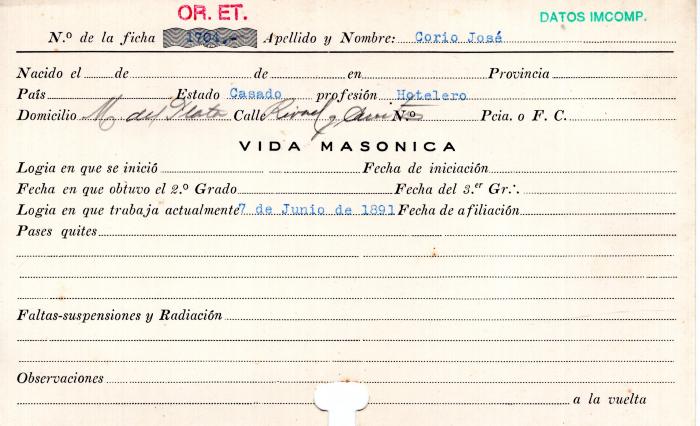 OR. ET.
DATOS IMCOMP.
N.º de la ficha 1704.- Apellido y Nombre: Corio José
Nacido el de de en Provincia
País Estado Casado profesión Hotelero
Domicilio M del Plata Calle N.º Pcia. o F. C.
VIDA MASONICA
Logia en que se inició Fecha de iniciación
Fecha en que obtuvo el 2.º Grado Fecha del 3.er Gr∴
Logia en que trabaja actualmente 7 de Junio de 1891 Fecha de afiliación
Pases quites
Faltas-suspensiones y Radiación
Observaciones
a la vuelta